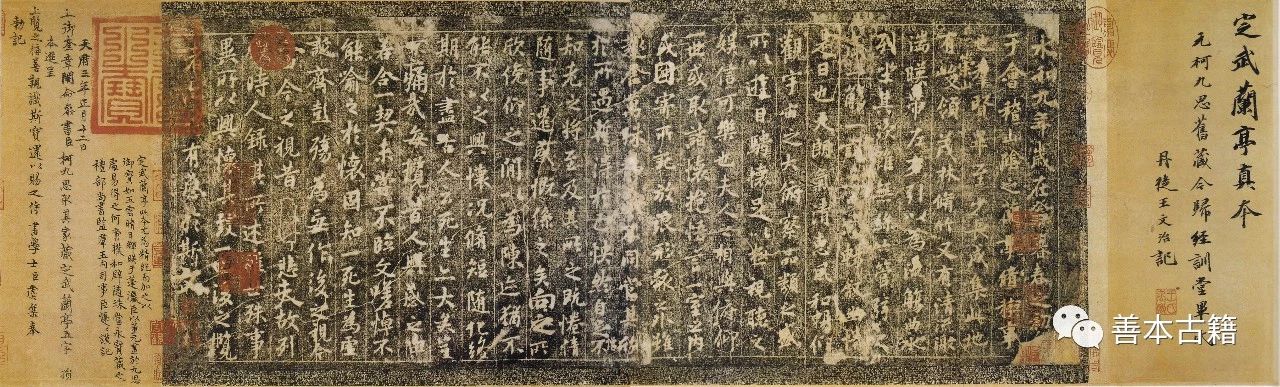 定武蘭亭真本
元柯九思舊藏今歸經訓堂畢
丹徒王文治記
永和九年歲在癸丑暮春之初
于會稽山陰之蘭亭脩稧事
也羣賢畢至少長咸集此地
有峻領茂林脩竹又有清流
湍暎帶左右引以為流觴曲水
列坐其次雖無絲竹管弦之
一觴一詠亦足以暢敘幽情
是日也天朗氣清惠風和暢仰
觀宇宙之大俯察品類之盛
所以遊目騁懷足以極視聽之
娛信可樂也夫人之相與俯仰
一世或取諸懷抱悟言一室之內
或因寄所託放浪形骸之外雖
趣舍萬殊靜躁不同當其欣
於所遇蹔得於己快然自足不
知老之將至及其所之既惓情
隨事遷感慨係之矣向之所
欣俛仰之閒以為陳迹猶不
能不以之興懷況脩短隨化終
期於盡古人云死生亦大矣豈
不痛哉每攬昔人興感之由
若合一契未嘗不臨文嗟悼不
能喻之於懷固知一死生為虛
誕齊彭殤為妄作後之視今
亦由今之視昔悲夫故列
時人錄其所述雖世殊事
異所以興懷其致一也後之攬
者亦將有感於斯文
定武蘭亭此本尤為精絕而加之以
御寶如五雲晴日輝映于蓬瀛臣以董元畫於九思
處易得之何啻獲和璧隨珠當永寶藏之
禮部尚書監羣玉內司事臣謹記
天曆三年正月十二日
上御奎章閣命參書臣柯九思取其家藏定武蘭亭五字損
本進呈
上覽之稱善親識斯寶還以賜之侍書學士臣虞集奉
勅記
善本古籍